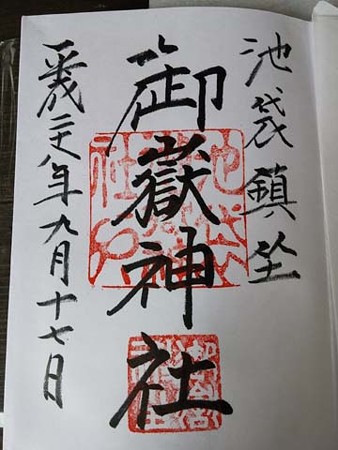 池袋鎮坐
御嶽神社
平成二十八年九月十七日